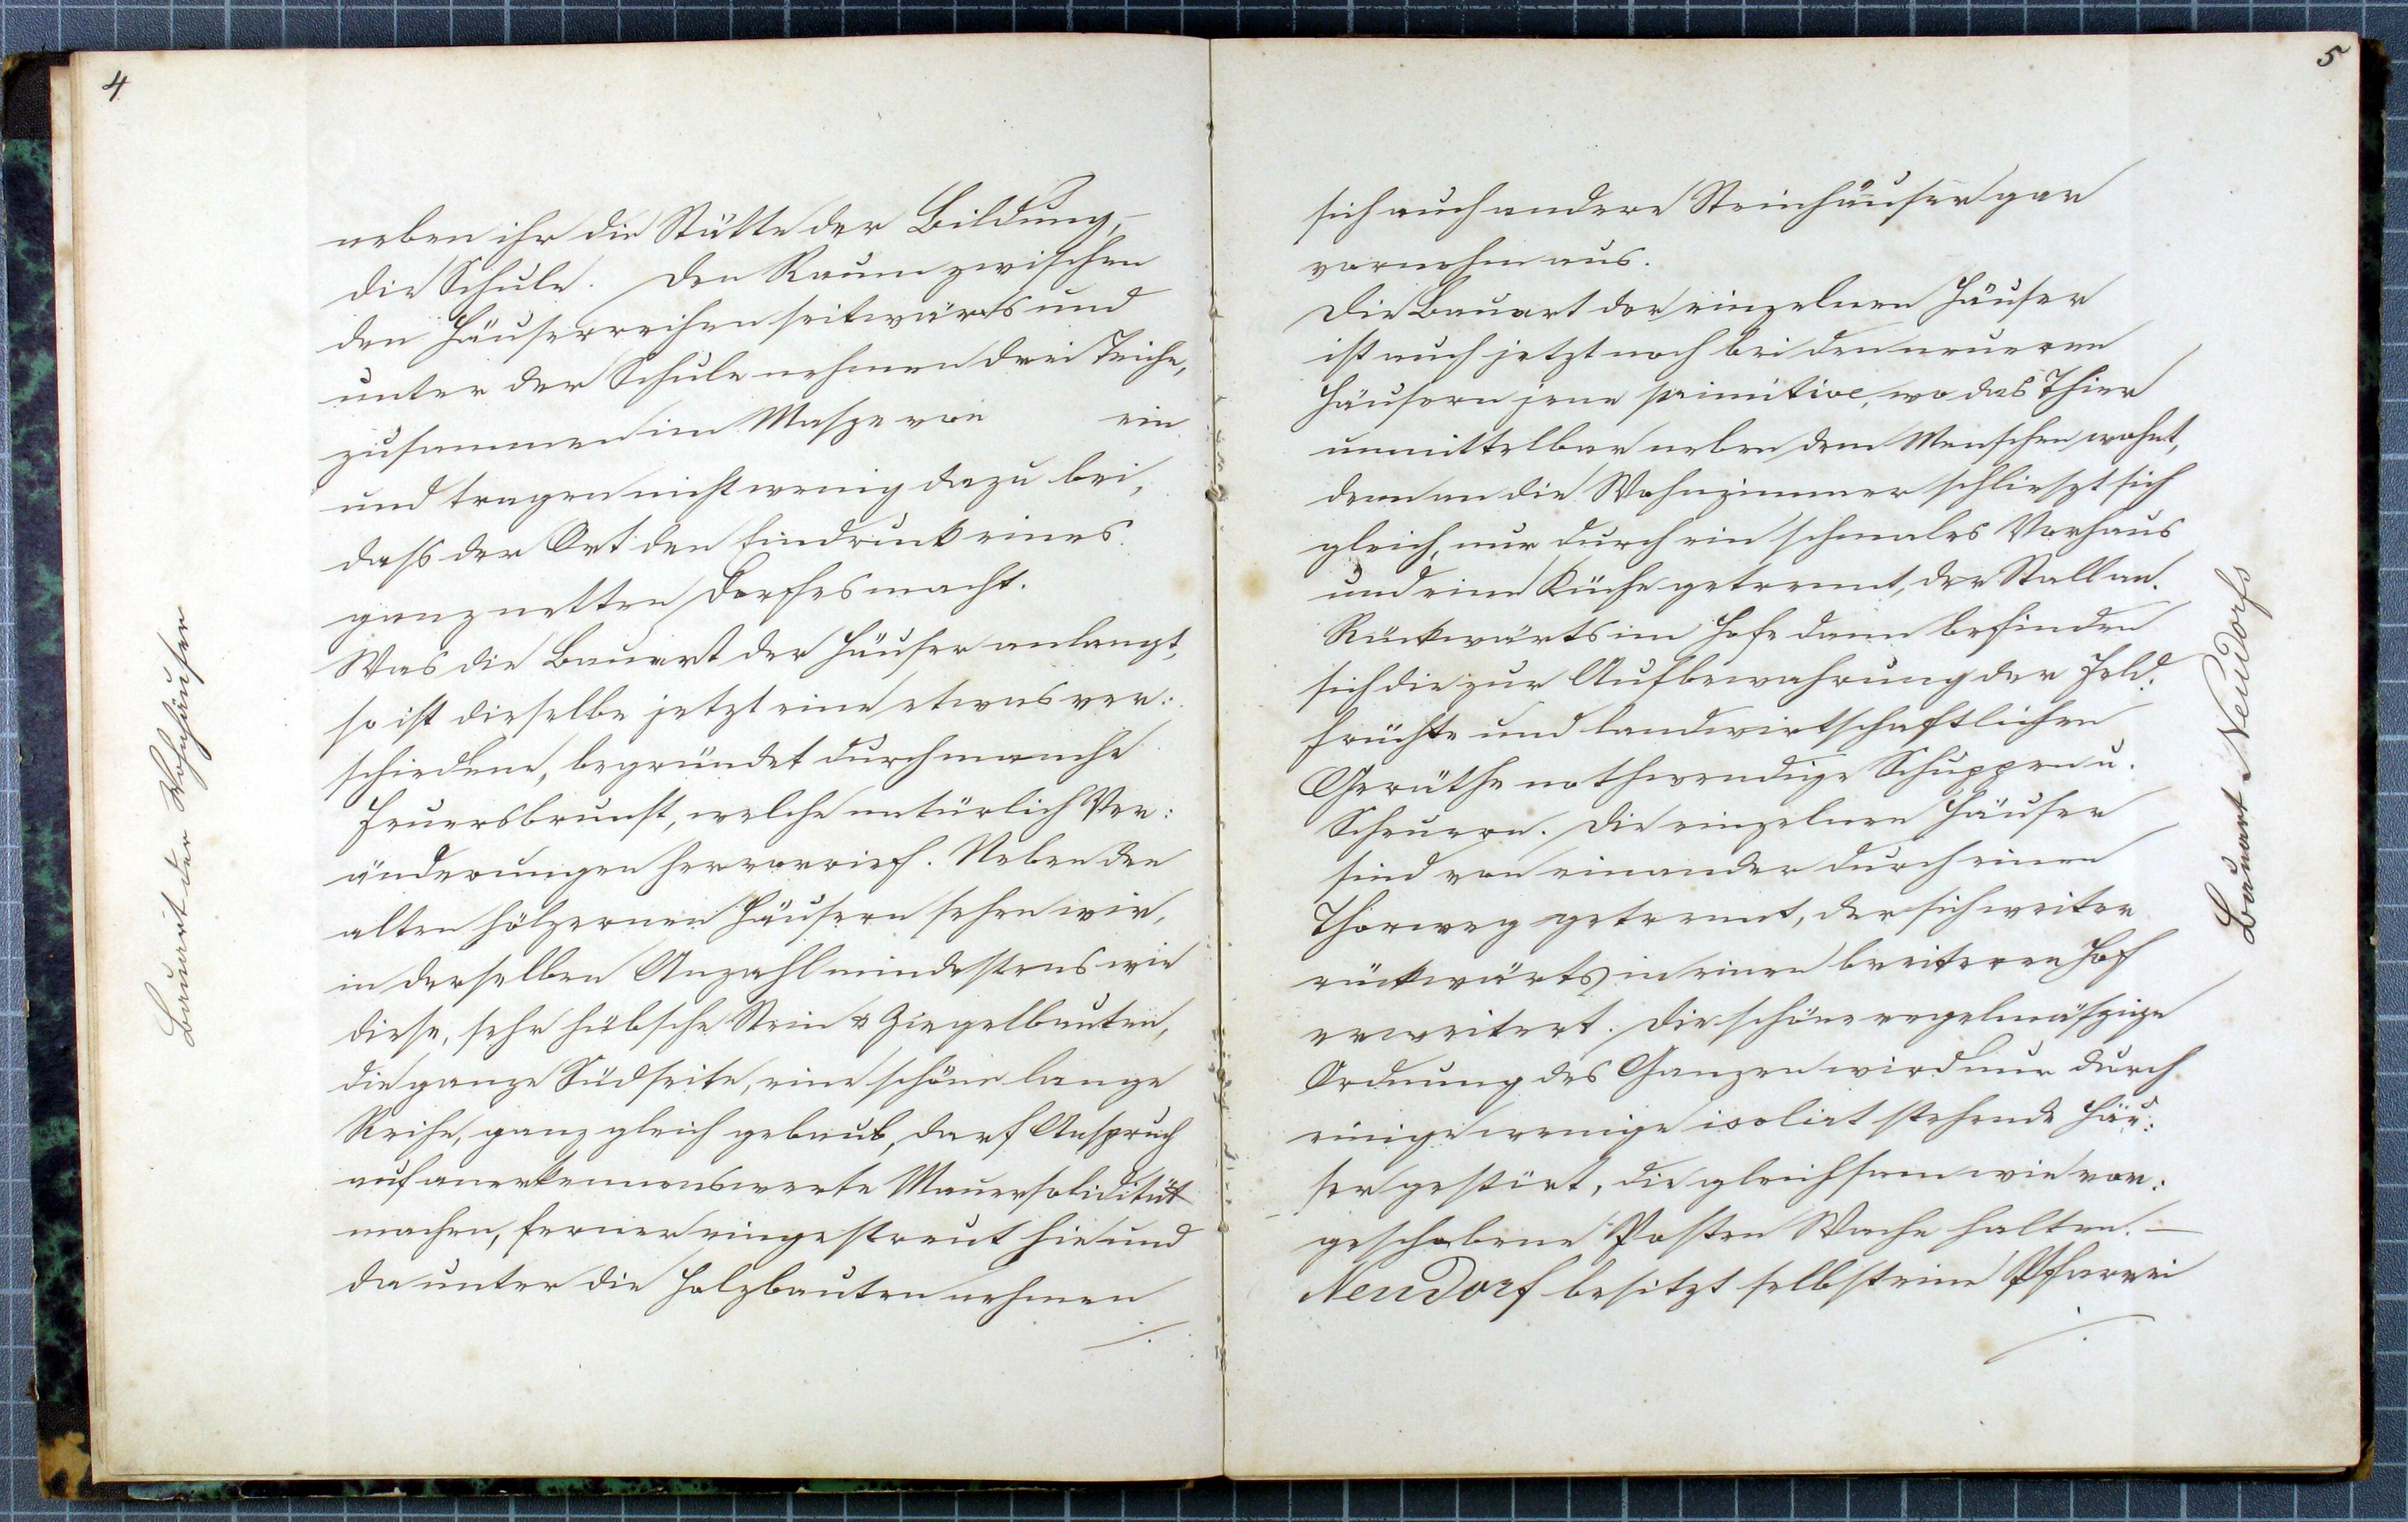 4
neben ihr die Stätte der Bildung,-
die Schule. Den Raum zwischen
den Häuserreihen seitwärts und
unter der Schule nehmen drei Teiche,
zusammen im Masze von ein
und tragen nicht wenig dazu bei,
dass der Ort den Eindruck eines
ganz netten Dorfes macht.
Was die Bauart der Häuser anlangt,
so ist dieselbe jetzt eine etwas ver:
schiedene, begründet durch manche
Feuersbrunst, welche natürlich Ver:
änderungen hervorrief. Neben den
alten hölzernen Häusern sehen wir,
in derselben Anzahl mindestens wie
diese, sehr hübsche Stein & Ziegelbauten,
die ganze Südseite, eine schöne lange
Reihe, ganz gleich gebaut, darf Anspruch
auf anerkennenswerte Mauersolidität
machen, ferner eingestreut hie und
da unter die Holzbauten nehmen
./.
Bauart der Wohnhäuser
5
sich auch andere Steinhäuser gar
vornehm aus.
Die Bauart der einzelnen Häuser
ist auch jetzt noch bei den neueren
Häusern jene primitive, wo das Thier
unmittelbar neben dem Menschen wohnt,
denn an die Wohnzimmer schlieszt sich
gleich, nur durch ein schmales Vorhaus
und eine Küche getrennt, der Stall an.
Rückwärts im Hofe dann befinden
sich die zur Aufbewahrung der Feld:
früchte und landwirtschaftlichen
Geräthe nothwendige Schuppen u.
Scheuern. Die einzelnen Häuser
sind von einander durch einen
Thorweg getrennt, der sich weiter
rückwärts in einen breiteren Hof
erweitert. Die schöne regelmäszige
Ordnung des Ganzen wird nur durch
einige wenige isolirt stehende Häu:
ser gestört, die gleichsam wie vor:
geschobene Posten Wache halten. —
Neudorf besitzt selbst eine Pfarrei
./.
Bauart Neudorfs